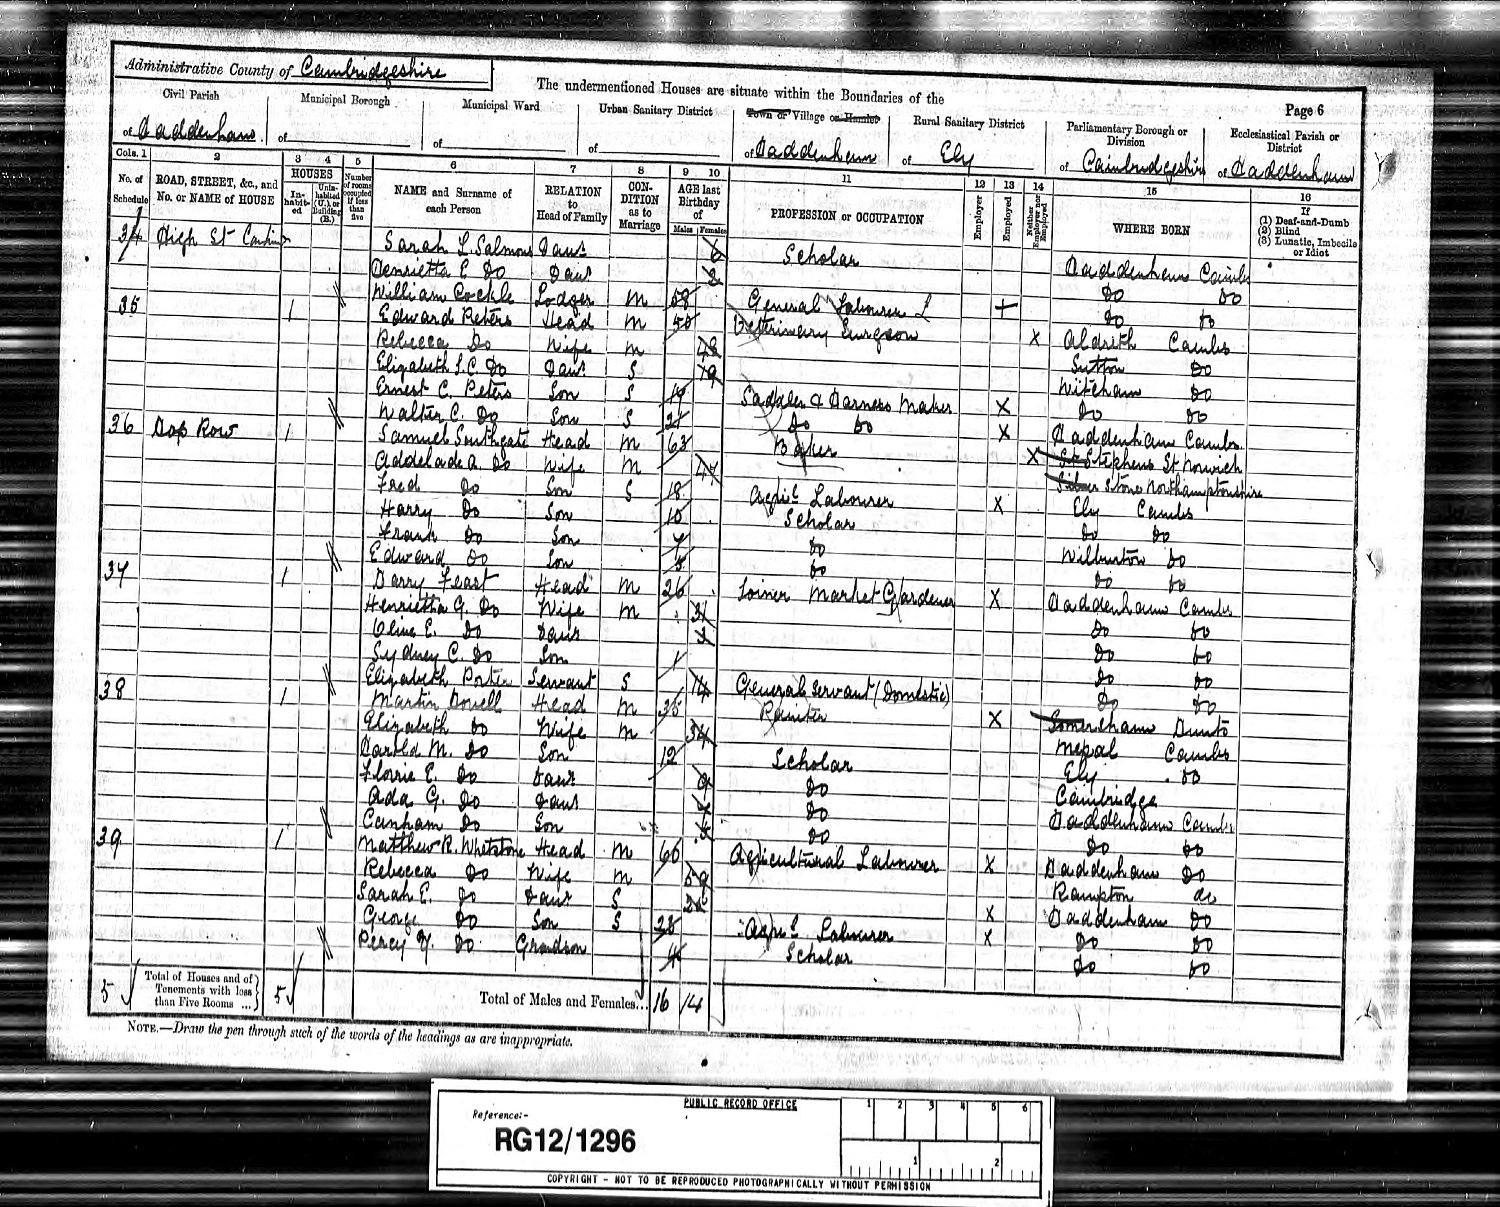 Administrative County of Cambridgeshire
The undermentioned Houses are situate within the Boundaries of the
Page 6
Civil Parish of Haddenham
Municipal Borough of
Municipal Ward of
Urban Sanitary District of
Town or Village or Hamlet of Haddenham
Rural Sanitary District of Ely
Parliamentary Borough or Division of Cambridgeshire
Ecclesiastical Parish or District of Haddenham
Cols. 1 2 3 4 5 6 7 8 9 10 11 12 13 14 15 16
No. of Schedule
ROAD, STREET, &c., and No. or NAME of HOUSE
HOUSES
Inhabited
Uninhabited (U.), or Building (B.)
Number of rooms occupied if less than five
NAME and Surname of each Person
RELATION to Head of Family
CONDITION as to Marriage
AGE last Birthday of
Males Females
PROFESSION or OCCUPATION
Employer
Employed
Neither Employer nor Employed
WHERE BORN
If (1) Deaf-and-Dumb (2) Blind (3) Lunatic, Imbecile or Idiot
34 High St Sarah L. Salmons Daur 6 Scholar Haddenham Cambs
Henrietta E Do Daur 2 Do Do
William Cockle Lodger M 58 General Labourer Do Do
35 1 Edward Peters Head M 50 Veterinary Surgeon X Aldrith Cambs
Rebecca Do Wife M 48 Sutton Do
Elizabeth S. C. Do Daur S 19 Witcham Do
Ernest C. Peters Son S 19 Saddler & Harness Maker X Do Do
Walter C. Do Son S 21 Do Do X Haddenham Cambs
36 Hop Row 1 Samuel Southgate Head M 63 Baker X St Stephens St Norwich
Addelade A. Do Wife M 47 Stone Northamptonshire
Fred Do Son S 18 Agric Labourer X Ely Cambs
Harry Do Son 10 Scholar Do Do
Frank Do Son 7 Do Wilburton Do
Edward Do Son 5 Do Do Do
37 1 Harry Feast Head M 26 Joiner Market Gardener X Haddenham Cambs
Henrietta G. Do Wife M 31 Do Do
Olive E. Do Daur 3 Do Do
Sydney C. Do Son 1 Do Do
Elizabeth Porter Servant S 14 General Servant (Domestic) Do Do
38 1 Martin Dowell Head M 35 Painter X Somersham Hunts
Elizabeth Do Wife M 34 Mepal Cambs
Harold M. Do Son 12 Scholar Ely Do
Florrie E. Do Daur 9 Do Cambridge
Ada G. Do Daur Do Haddenham Cambs
Canham Do Son Do Do Do
39 1 Matthew R. Whetstone Head M 60 Agricultural Labourer X Haddenham Do
Rebecca Do Wife M 59 Rampton do
Sarah E. Do Daur S X Haddenham Do
George Do Son S 28 Agric Labourer X Do Do
Percy Do Grandson 4 Scholar Do Do
5 Total of Houses and of Tenements with less than Five Rooms ... 5 Total of Males and Females... 16 14
NOTE.—Draw the pen through such of the words of the headings as are inappropriate.
PUBLIC RECORD OFFICE
1 2 3 4 5 6
Reference:-
RG12/1296
1 2
COPYRIGHT - NOT TO BE REPRODUCED PHOTOGRAPHICALLY WITHOUT PERMISSION